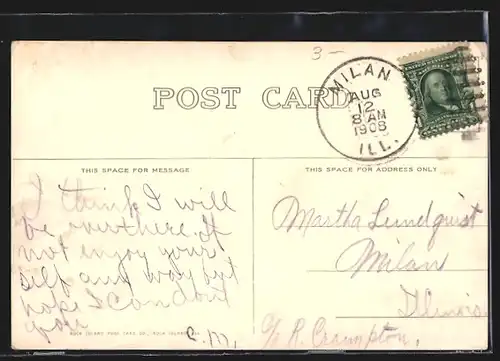 3-
MILAN
AUG
12
8 AM
1908
ILL.
POST CARD
THIS SPACE FOR MESSAGE
THIS SPACE FOR ADDRESS ONLY
I think I will
be over there. If
not enjoy your
self any way but
hope I can out
you
C.M.
Martha Lundquist
Milan
Illinois.
c/o R. Crampton.
ROCK ISLAND POST CARD CO., ROCK ISLAND, ILL.